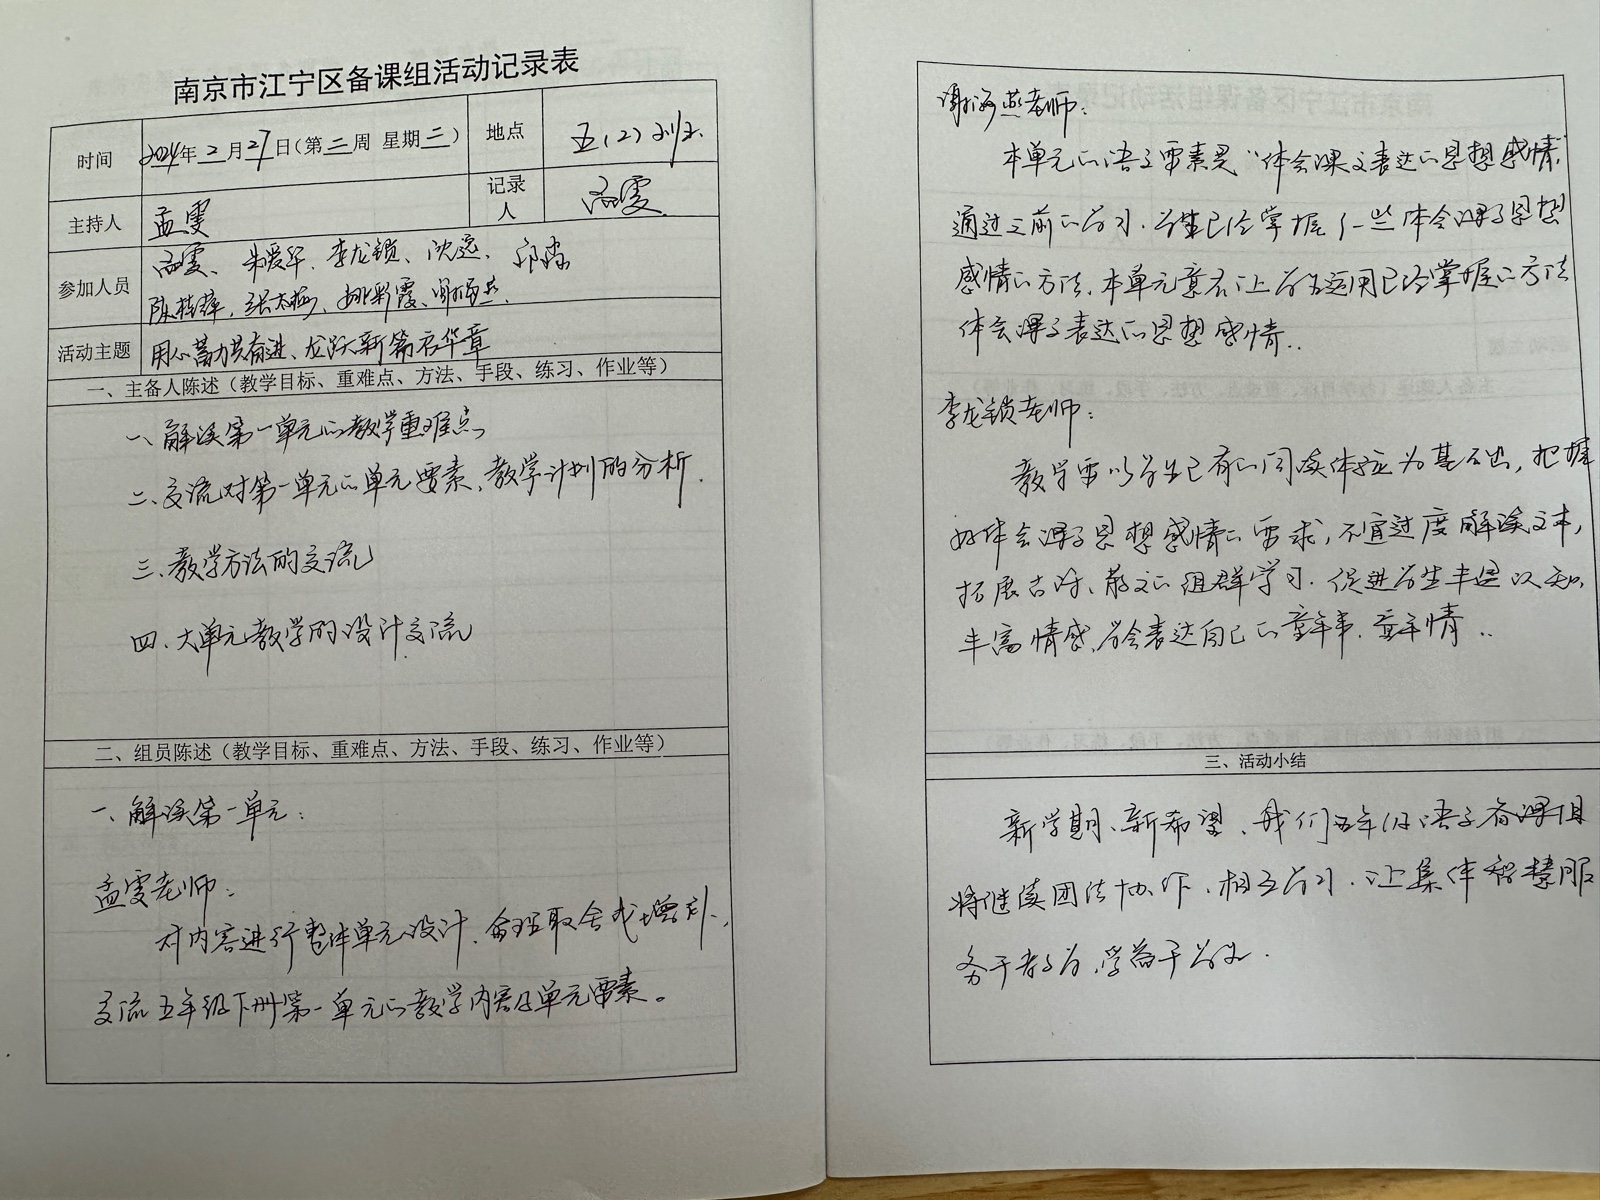 南京市江宁区备课组活动记录表
时间 2024年2月27日(第二周 星期二) 地点 五(2)
主持人 孟雯 记录人 孟雯
参加人员 孟雯、朱爱华、李龙锁、沈逸、
陈桂萍、张太梅、姚彩霞、谢海燕
活动主题 用心蓄力共奋进、龙跃新篇启华章
一、主备人陈述（教学目标、重难点、方法、手段、练习、作业等）
一、解读第一单元的教学重难点
二、交流对第一单元的单元要素、教学计划的分析.
三、教学方法的交流
四、大单元教学的设计交流
二、组员陈述（教学目标、重难点、方法、手段、练习、作业等）
一、解读第一单元：
孟雯老师：
对内容进行整体单元设计，合理取舍或增补，
交流五年级下册第一单元的教学内容及单元要素。
谢海燕老师：
本单元的语文要素是“体会课文表达的思想感情”
通过之前的学习，学生已经掌握了一些体会课文思想
感情的方法，本单元意在让学生运用已经掌握的方法
体会课文表达的思想感情..
李龙锁老师：
教学需以学生已有的阅读体验为基石出，把握
好体会课文思想感情的要求，不宜过度解读文本，
拓展古诗、散文的组群学习，促进学生丰富认知，
丰富情感，学会表达自己的童年事、童年情..
三、活动小结
新学期、新希望、我们五年级语文备课组
将继续团结协作、相互学习，让集体智慧服
务于教学，学益于学生.